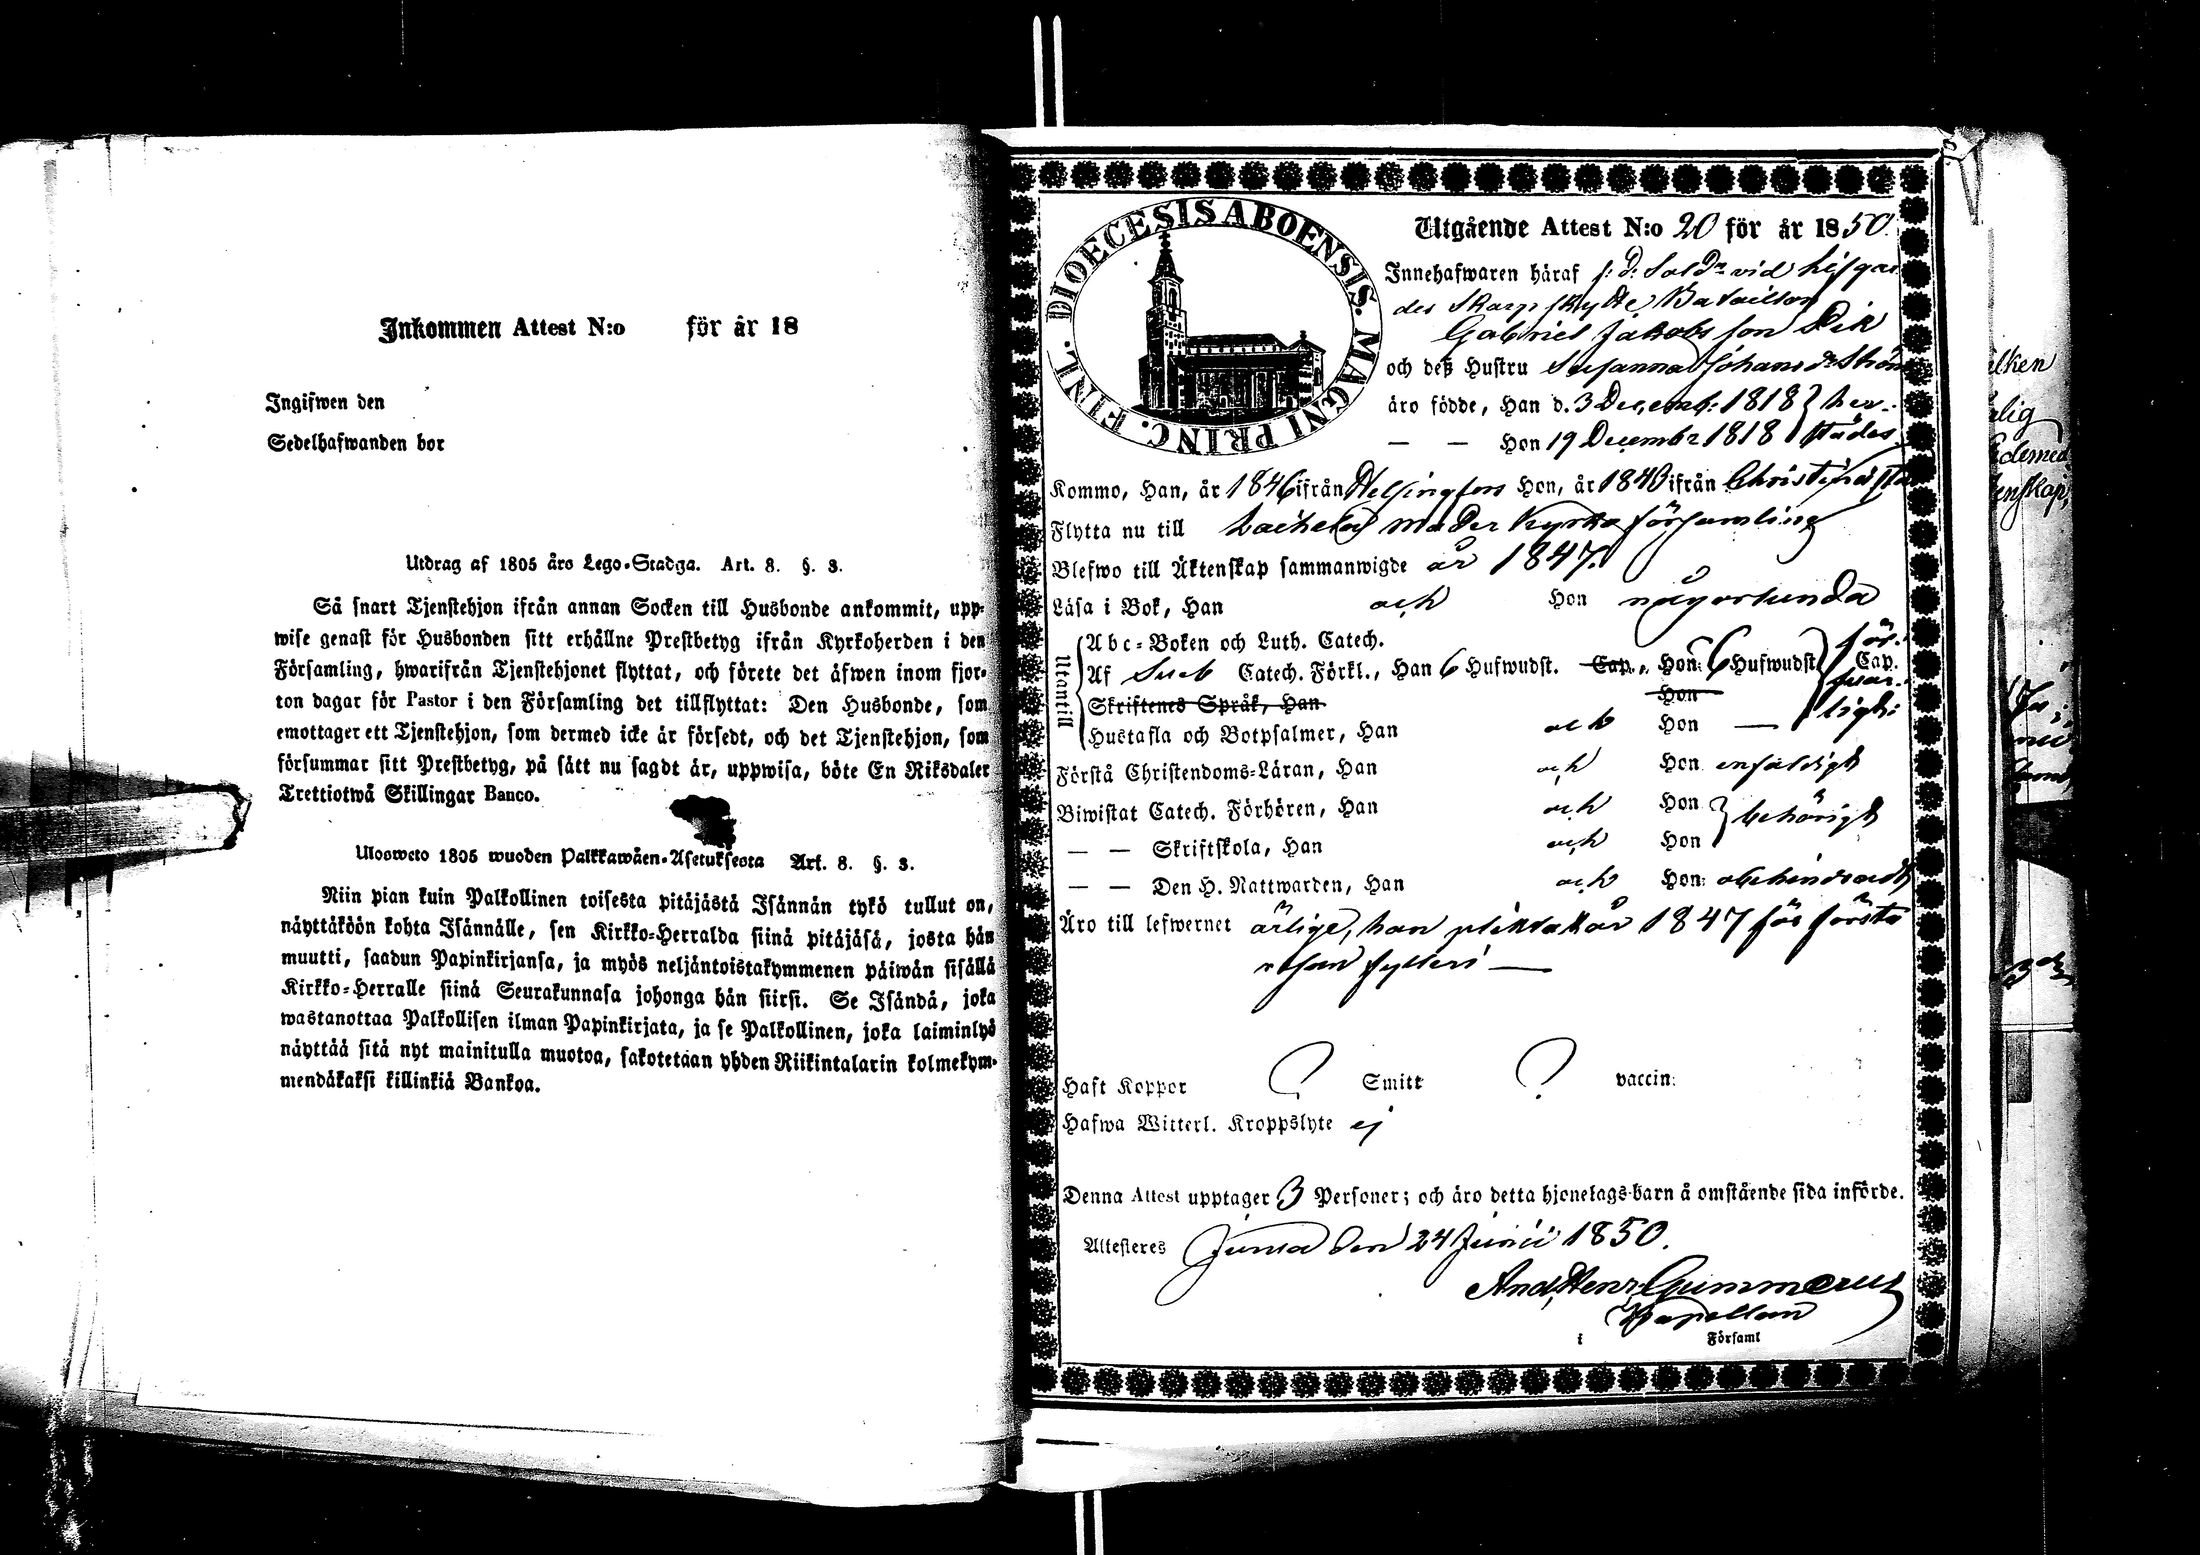 Inkommen Attest N:o för år 18
Ingifwen den
Sedelhafwanden bor
Utdrag af 1805 års Lego-Stadga. Art. 8. §. 3.
Så snart Tjenstehjon ifrån annan Socken till Husbonde ankommit, upp-
wise genast för Husbonden sitt erhållne Prestbetyg ifrån Kyrkoherden i den
Församling, hwarifrån Tjenstehjonet flyttat, och förete det äfwen inom fjor-
ton dagar för Pastor i den Församling det tillflyttat: Den Husbonde, som
emottager ett Tjenstehjon, som dermed icke är försedt, och det Tjenstehjon, som
försummar sitt Prestbetyg, på sätt nu sagdt är, uppwisa, böte En Riksdaler
Trettiotwå Skillingar Banco.
Ulosweto 1805 wuoden Palkkawäen-Asetuksesta Art. 8. §. 3.
Niin pian kuin Palkollinen toisesta pitäjästä Isännän tykö tullut on,
näyttäköön kohta Isännälle, sen Kirkko-Herralda siinä pitäjäsä, josta hän
muutti, saadun Papinkirjansa, ja myös neljäntoistakymmenen päiwän sisällä
Kirkko-Herralle siinä Seurakunnasa johonga hän siirsi. Se Isändä, joka
wastanottaa Palkollisen ilman Papinkirjata, ja se Palkollinen, joka laiminlyö
näyttää sitä nyt mainitulla muotoa, sakotetaan yhden Riikintalarin kolmekym-
mendäkaksi killinkiä Bankoa.
DIOECESIS ABOENSIS. MAGNI PRINC. FINL.
Utgående Attest N:o 20 för år 1850.
Innehafwaren häraf f: d: Soldn vid Lifgar
des Skarpskytte Bataillon
Gabriel Jakobsson Dik
och deß Hustru Susanna Johansdr Ström
äro födde, Han d. 3 Decemb: 1818 } här-
— — Hon 19 Decembr 1818 } städes
Kommo, Han, år 1846 ifrån Helsingfors Hon, år 1840 ifrån Christinæsta
Flytta nu till Laihela moder Kyrko församling
Blefwo till Äktenskap sammanwigde år 1847.
Läsa i Bok, Han och Hon någorlunda
Utantill
Abc-Boken och Luth. Catech.
Af Sveb Catech. Förkl., Han 6 Hufwudst. Cap., Hon 6 Hufwudst. Cap. för-
svar-
Skriftenes Språk, Han Hon
ligt:
Hustafla och Botpsalmer, Han och Hon —
Förstå Christendoms-Läran, Han och Hon enfaldigt
Biwistat Catech. Förhören, Han och Hon } behörigt
— — Skriftskola, Han och Hon
— — Den H. Nattwarden, Han och Hon obehindradt
Äro till lefwernet ärlige, han pliktat år 1847 för första
resan fylleri —
Haft Koppor ? Smitt ? vaccin:
Hafwa Witterl. Kroppslyte ej
Denna Attest upptager 3 Personer; och äro detta hjonelags barn å omstående sida införde.
Attesteres Jurva den 24 Junii 1850.
And. Henr. Gummerus
Kapellan
i Församl